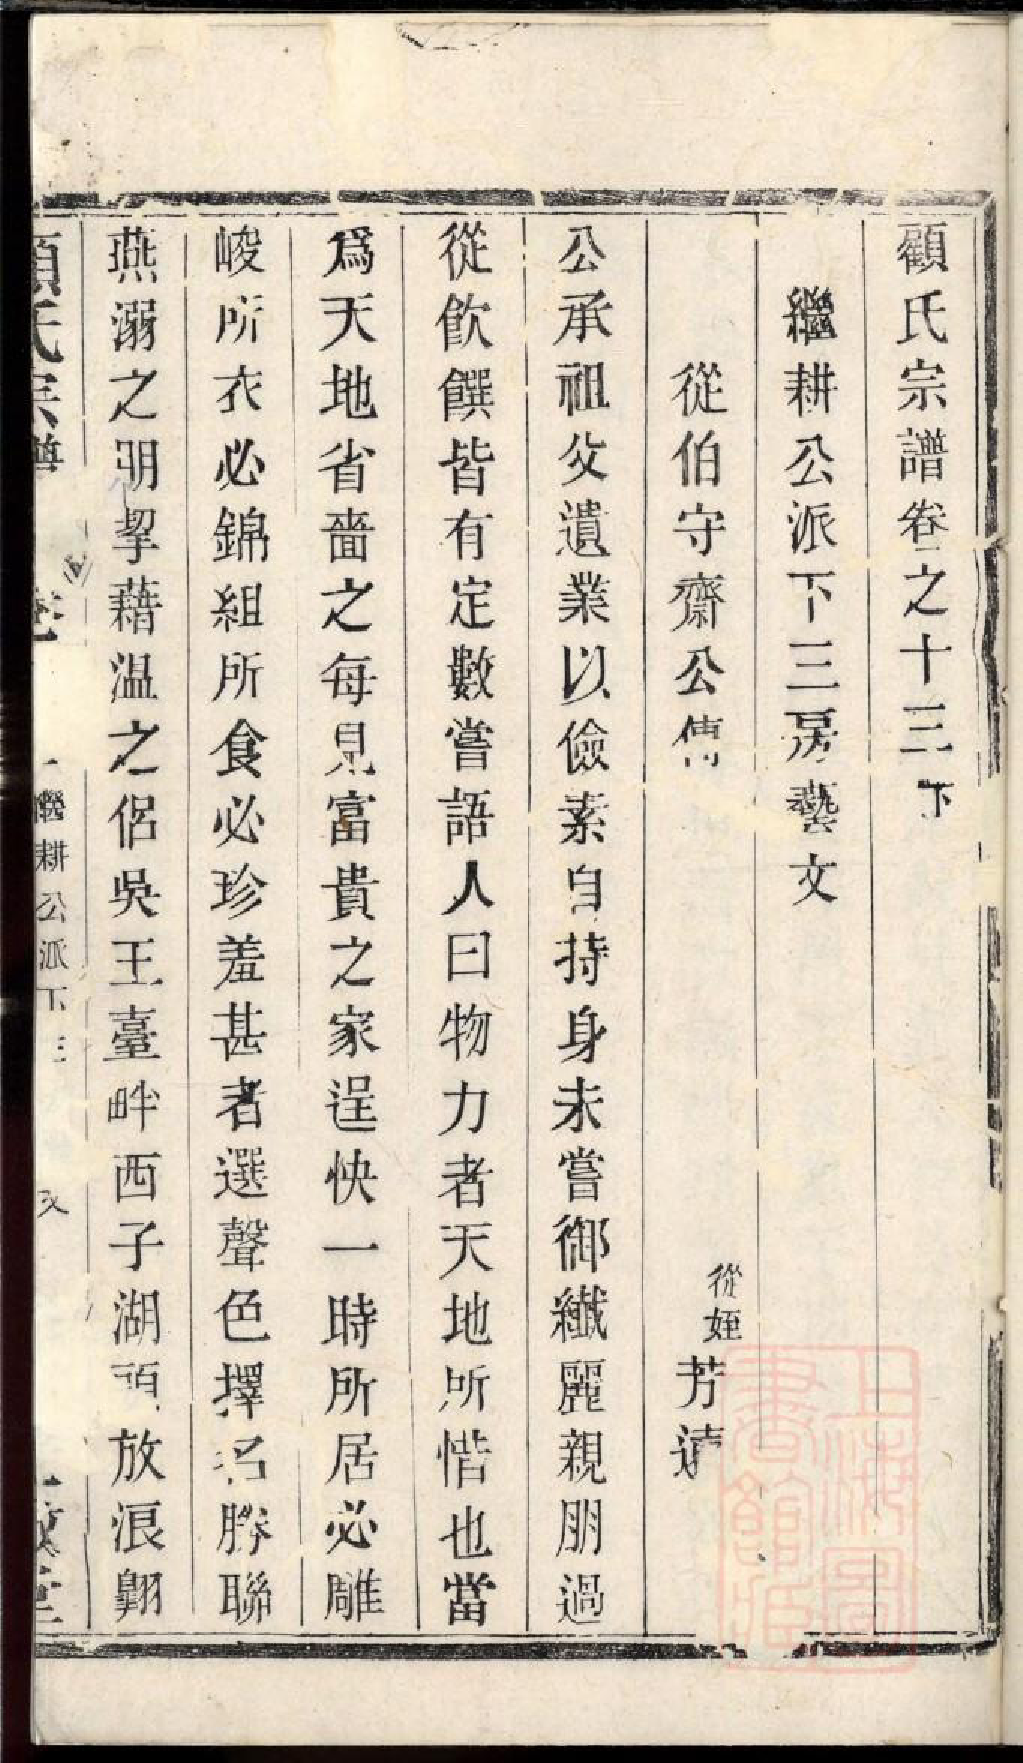 顧氏宗譜卷之十三下
繼耕公派下三房藝文
從伯守齋公傳
從姪芳
公承祖父遺業以儉素自持身未嘗御纖麗親朋過
從飲饌皆有定數嘗語人曰物力者天地所惜也當
爲天地省嗇之每見富貴之家逞快一時所居必雕
峻所衣必錦組所食必珍羞甚者選聲色擇名勝聯
燕溺之朋挈藉溫之侶吳王臺畔西子湖頭放浪翺
顧氏宗譜
繼耕公派下三
上海圖書館藏